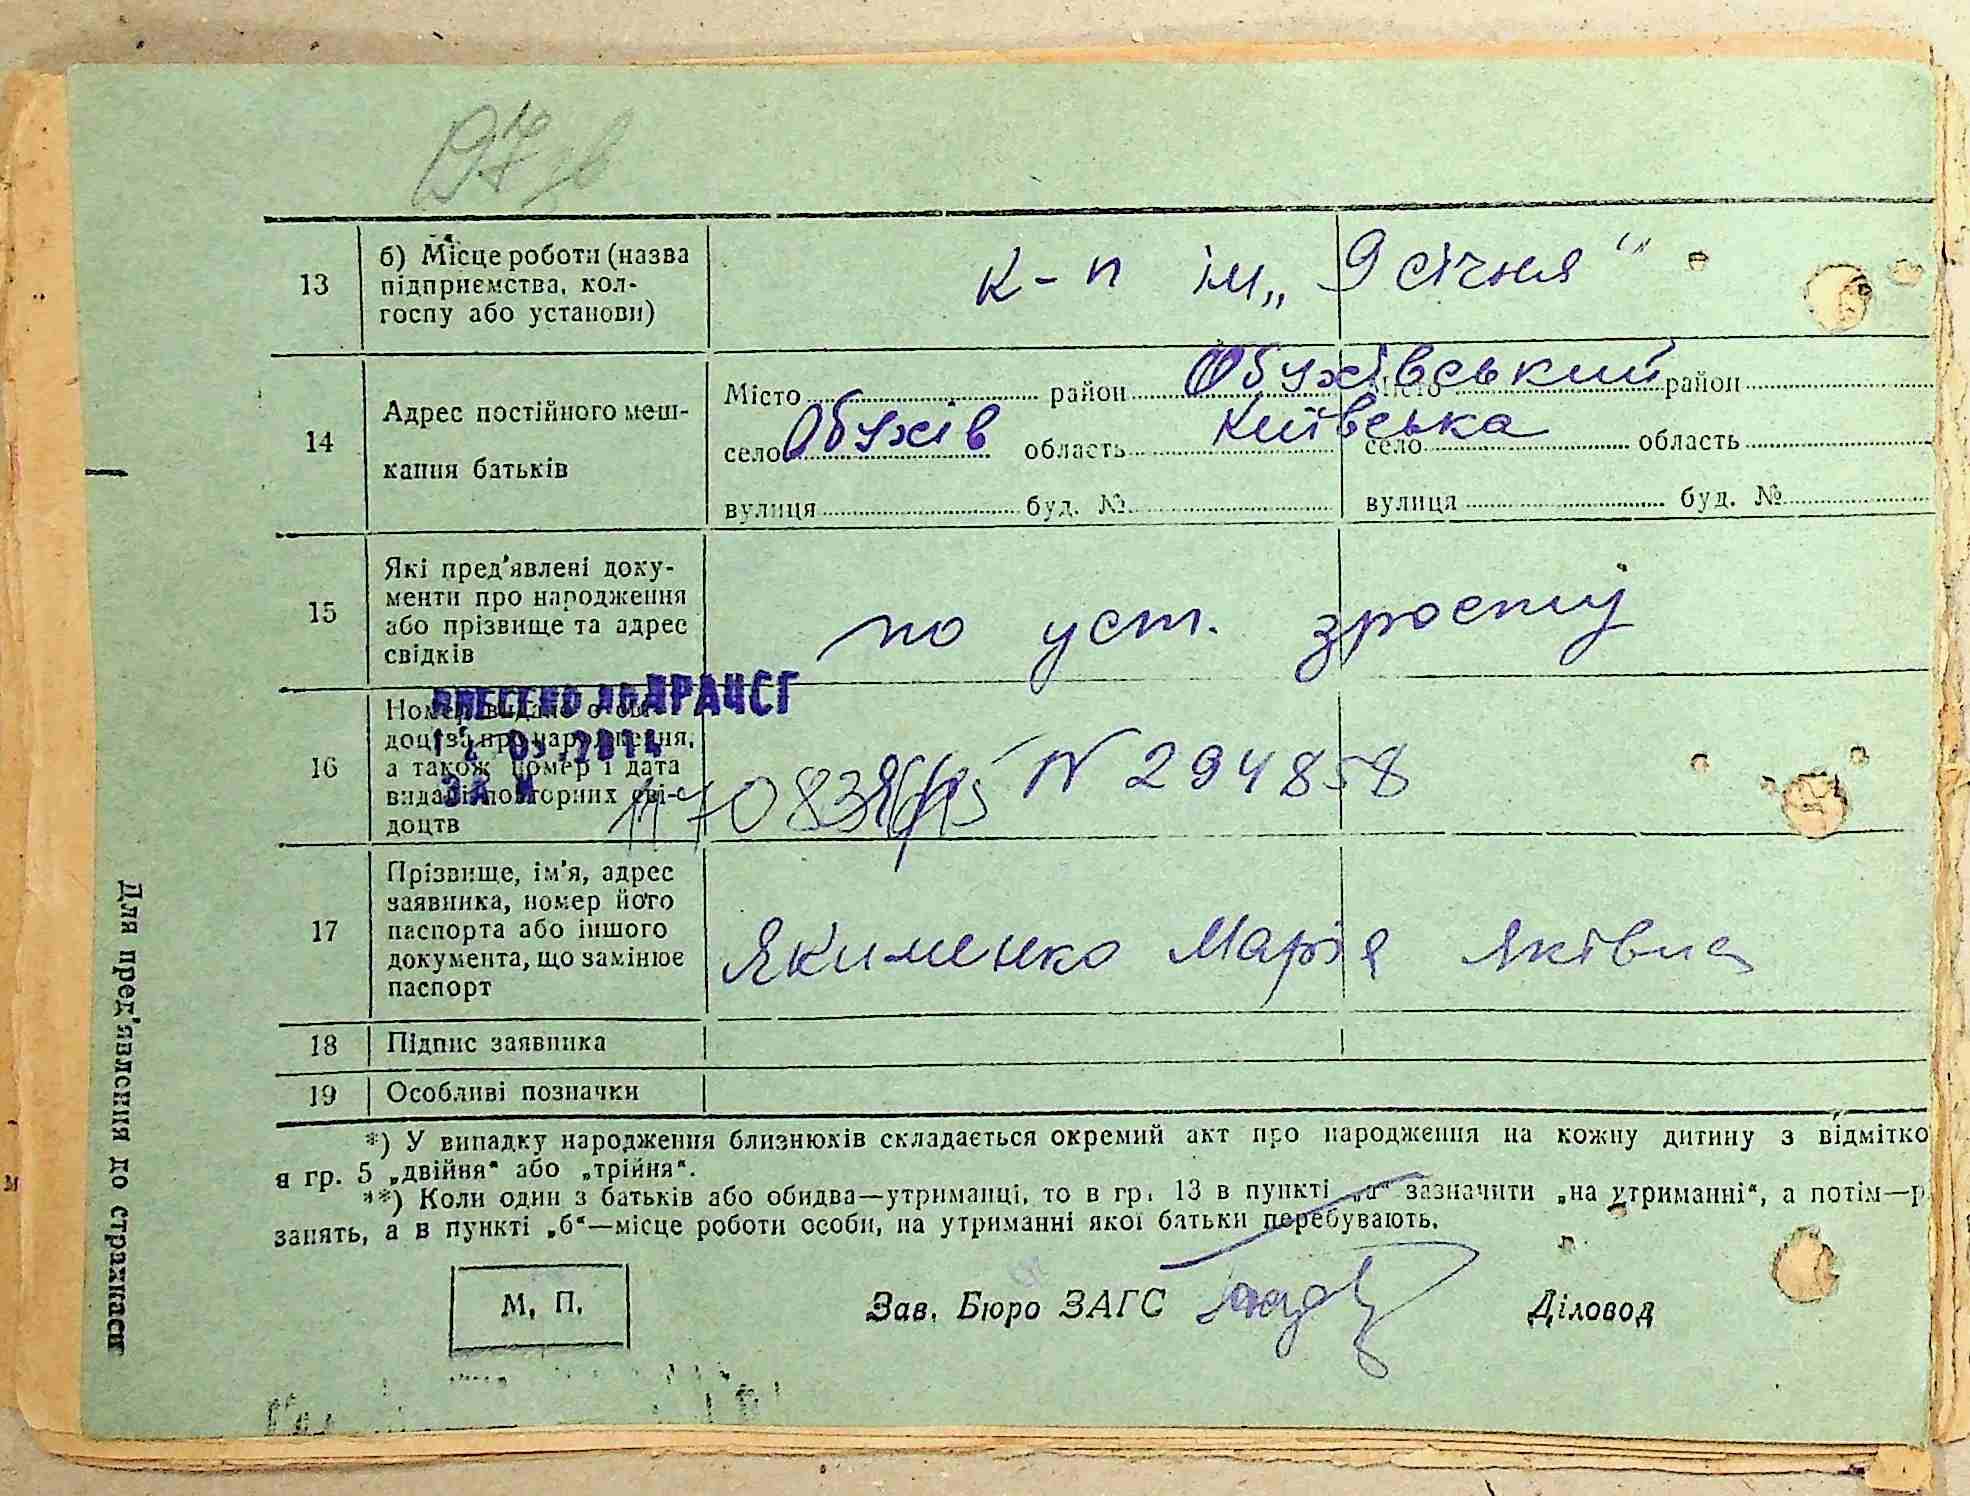 13
б) Місце роботи (назва
підприємства, кол-
госпу або установи)
к-п ім „ 9 січня "
14
Адрес постійного меш-
кання батьків
Місто район Обухівський Місто район
село Обухів область Київська село область
вулиця буд. № вулиця буд. №
15
Які пред'явлені доку-
менти про народження
або прізвище та адрес
свідків
по уст. зросту
16
Номер виданого сві-
доцтва про народження,
а також номер і дата
видачі повторних сві-
доцтв
ВНЕСЕНО ДО ДРАЦСГ
ЗА №
N 294858
17
Прізвище, ім'я, адрес
заявника, номер його
паспорта або іншого
документа, що замінює
паспорт
Якименко Марія Яківна
18
Підпис заявника
19
Особливі позначки
*) У випадку народження близнюків складається окремий акт про народження на кожну дитину з відмітко
я гр. 5 „двійня" або „трійня".
**) Коли один з батьків або обидва—утриманці, то в гр. 13 в пункті „а" зазначити „на утриманні", а потім—р
занять, а в пункті „б"—місце роботи особи, на утриманні якої батьки перебувають.
М. П.
Зав. Бюро ЗАГС
Діловод
Для пред'явлення до страхкаси